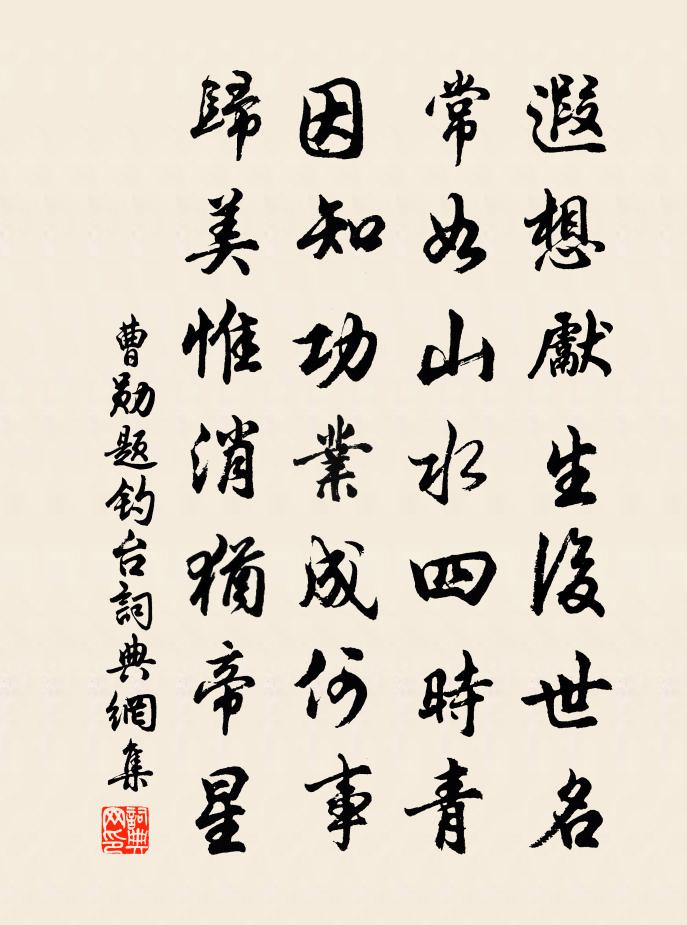 遐想獻生後世名
常如山水四時青
因知功業成何事
歸美惟消猶帝星
曹勛題釣台詞典網集
詞典网印